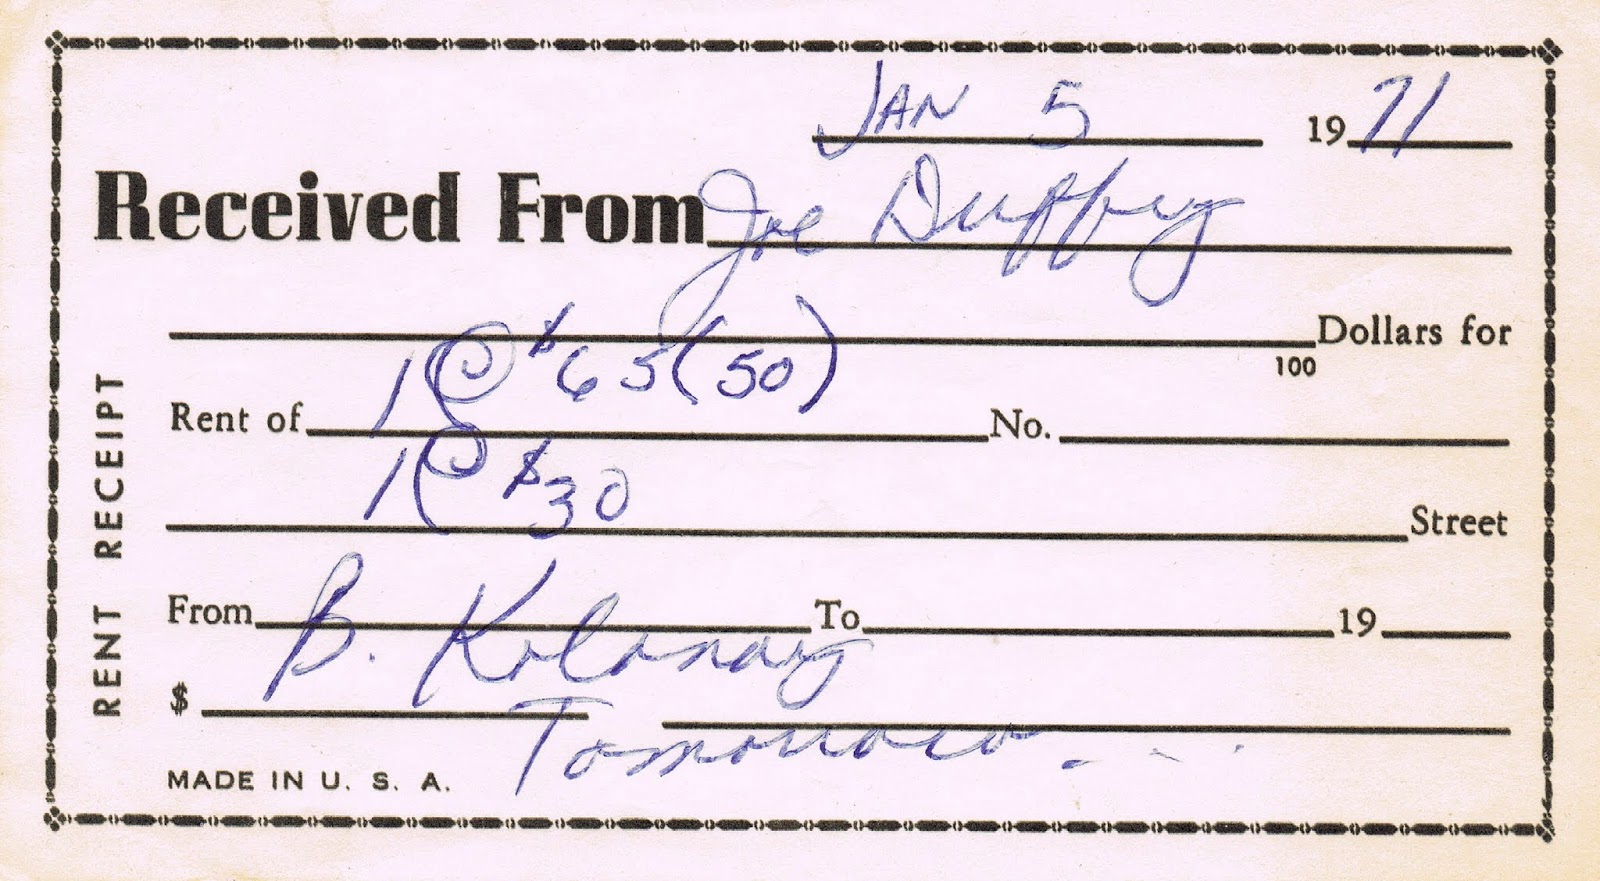 JAN 5 1971
Received From Joe Duffy
Dollars for
100
1 @ $65 (50)
Rent of No.
1 @ $30
Street
From To 19
B.
$
Tomorrow...
MADE IN U. S. A.
RENT RECEIPT